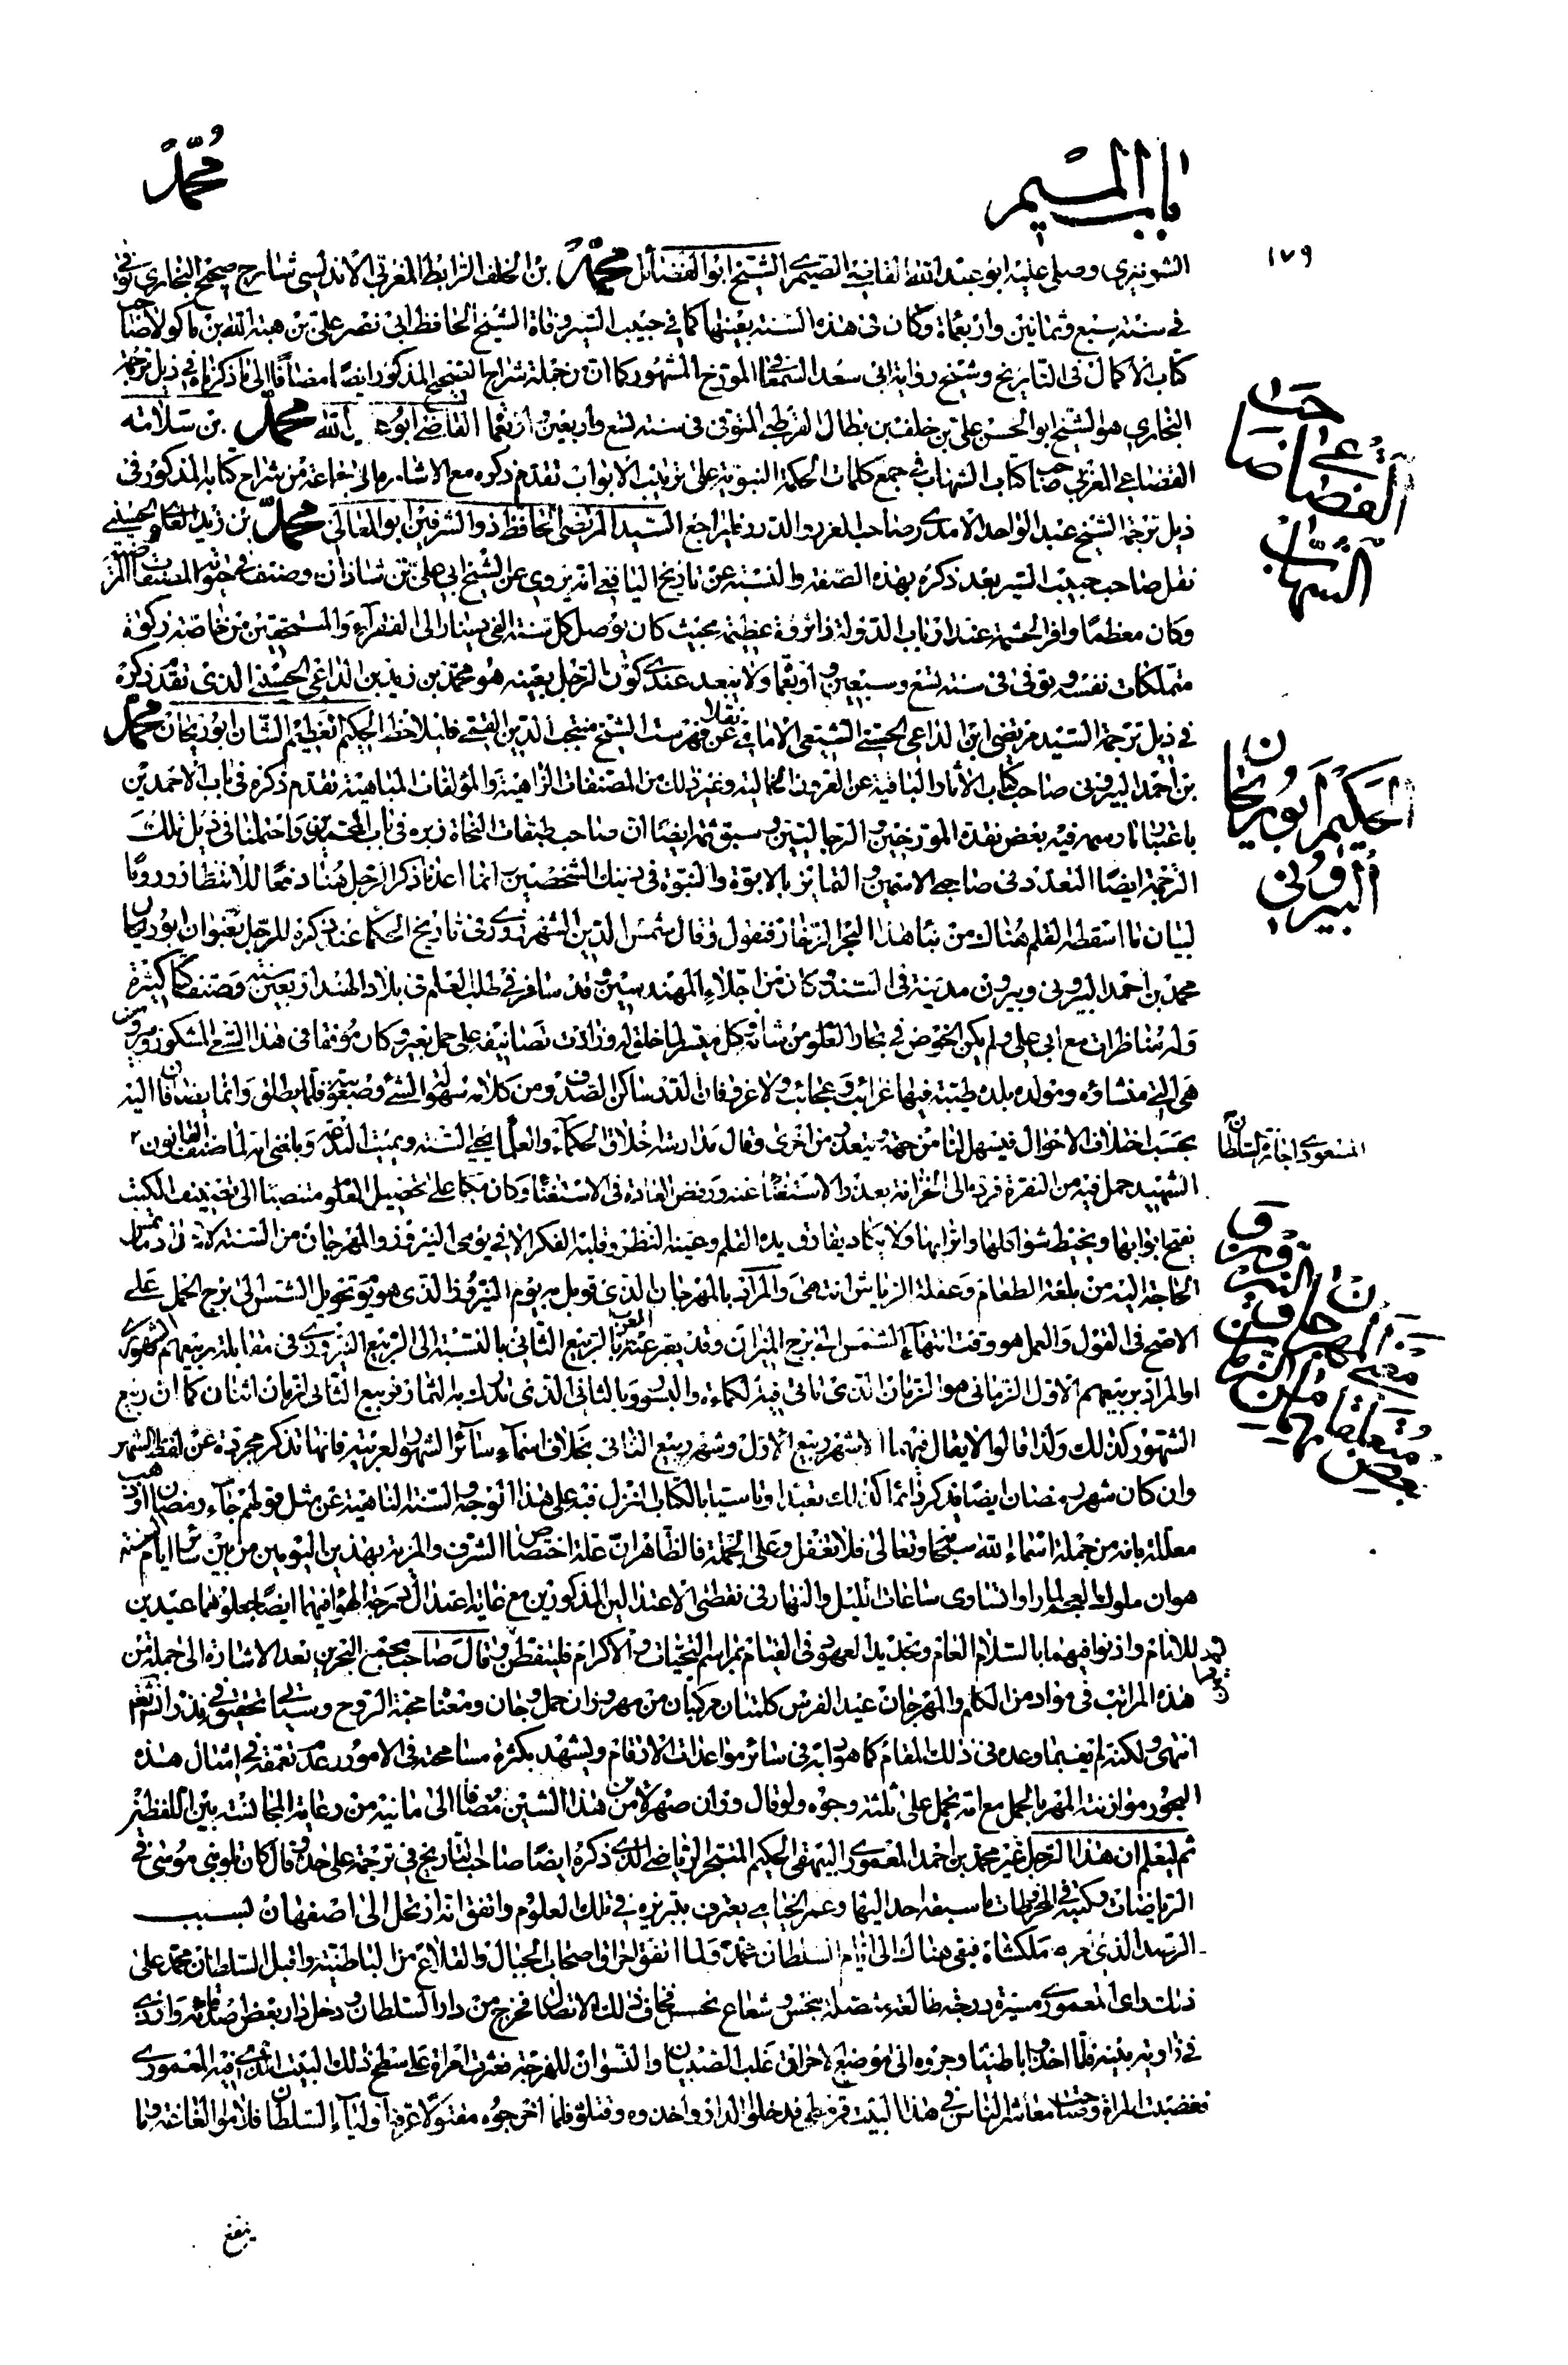 باب الميم
محمد
١٧٩
الشونيزي وصلى عليه ابو عبد الله القاضي الصيمري الشيخ ابو الفضائل محمد بن الخلف المرابط المغربي الاندلسي شارح صحيح البخاري توفي
في سنة سبع وثمانين واربعمأة وكان في هذه السنة بعينها كما في حبيب السير وفاة الشيخ الحافظ ابي نصر علي بن هبة الله بن ماكولا صاحب
كتاب الاكمال في التاريخ وشيخ رواية ابي سعد السمعاني المورخ المشهور كما ان من جملة شراح الصحيح المذكور ايضا مضافا الى ما ذكرناه في ذيل ترجمة
البخاري هو الشيخ ابو الحسن علي بن خلف بن بطال القرطبي المتوفى في سنة تسع واربعين واربعمأة القاضي ابو عبد الله محمد بن سلامة
القضاعي المغربي صاحب كتاب الشهاب في جمع كلمات الحكمة النبوية على ترتيب الابواب تقدم ذكره مع الاشارة الى جماعة من شراح كتابه المذكور في
ذيل ترجمة الشيخ عبد الواحد الامدي صاحب الغرر والدرر فليراجع السيد المرتضى الحافظ ذو الشرفين ابو المعالي محمد بن زيد العلوي الحسيني
نقل صاحب حبيب السير بعد ذكره بهذه الصفة والنسبة عن تاريخ اليافعي انه يروي عن الشيخ ابي علي بن شاذان وصنف في حيوته المصنفات
وكان معظما وافر الحشمة عند ارباب الدولة ذا ثروة عظيمة بحيث كان يوصل كل سنة الفي دينار الى الفقراء والمستحقين من خاصة زكوة
متملكات نفسه وتوفى في سنة تسع وسبعين واربعمأة ولا يبعد عندي كون الرجل بعينه هو محمد بن زيد بن الداعي الحسيني الذي تقدم ذكره
في ذيل ترجمة السيد مرتضى ابن الداعي الحسيني الشيعي الامامي نقلا عن فهرست الشيخ منتجب الدين القمي فليلاحظ الحكيم العظيم الشان ابو ريحان محمد
بن احمد البيروني صاحب كتاب الاثار الباقية عن القرون الخالية وغير ذلك من المصنفات الزاهية والمؤلفات المباهية تقدم ذكره في باب الاحمدين
باعتبار ما رسمه فيه بعض نقدة المورخين والرجاليين وسبق ثمة ايضا ان صاحب طبقات النحاة زبره في باب المحمدين واحتملنا في ذيل تلك
الترجمة ايضا التعدد في صاحبي الاسمين والتمايز بالابوة والنبوة في ذينك الشخصين انما اعدنا ذكر الرجل هنا دفعا للانتظار وروما
لبيان ما اسقطه القلم هناك من نبأ هذا البحر الزخار فنقول وقال شمس الدين الشهرزوري في تاريخ الحكماء عند ذكره للرجل بعنوان ابو ريحان
محمد بن احمد البيروني وبيرون مدينة في السند كان من اجلاء المهندسين وقد سافر في طلب العلم في بلاد الهند اربعين سنة وصنف كتبا كثيرة
وله مناظرات مع ابي علي ولم يكن الخوض في بحار العلوم من شانه كل ميسر لما خلق له وزادت تصانيفه على حمل بعير وكان موفقا في هذا السعي المشكور وبيرون
هي التي منشاؤه ومولده بلدة طيبة فيها غرائب وعجائب ولا غرو فان الدر ساكن الصدف ومن كلامه
بحسب اختلاف الاحوال فيسهل لنا من جهة ويتعذر من اخرى وقال مدارسة اخلاق الحكماء والعلماء يحيي السنة ويميت البدعة وبلغني انه لما صنف القانون
المسعودي اجازه السلطان
الشهيد حمل فيه من النقرة فرده الى الخزانة بعذر الاستغناء عنه ورفض العادة في الاستغناء وكان مكبا على تحصيل العلوم منصبا الى تصنيف الكتب
يفتح ابوابها ويحيط شواكلها واقرابها ولا يكاد يفارق يده القلم وعينه النظر وقلبه الفكر الا في يومي النيروز والمهرجان من السنة لاعداد ما تمس
الحاجة اليه من بلغة الطعام وعلقة الرياش انتهى والمراد بالمهرجان الذي قوبل به يوم النيروز الذي هو يوم تحويل الشمس الى برج الحمل على
الاصح في القول والعمل هو وقت انتهاء الشمس الى برج الميزان وقد يعبر عنه العرب بالربيع الثاني بالنسبة الى الربيع النيروزي في مقابلة ربيعهم الشهوري
او المراد بربيعهم الاول الزماني هو الزمان الذي تاتي فيه الكماءة والنور وبالثاني الذي تدرك به الثمار فربيع الثاني لزمان اثنان كما ان ربيع
الشهور كذلك ولذا قالوا لا يقال فيهما الا شهر ربيع الاول وشهر ربيع الثاني بخلاف اسماء سائر الشهور العربية فانها تذكر مجردة عن لفظ الشهر
وان كان شهر رمضان ايضا قد يذكر دائما كذلك تعبدا وتاسيا بالكتاب المنزل فيه على هذا الوجه والسنة الناهية عن مثل قولهم جاء رمضان او ذهب
معللة بانه من جملة اسماء الله سبحانه وتعالى فلا تغفل وعلى الجملة فالظاهر ان علة اختصاص الشرف والمزية بهذين اليومين من بين سائر ايام السنة
هو ان ملوك العجم لما راوا تساوى ساعات الليل والنهار في نقطتي الاعتدالين المذكورين مع غاية اعتدال درجة الهواء فيهما ايضا جعلوهما عيدين
للانام واذنوا فيهما بالسلام العام وتجديد العهود في القيام بمراسم التحيات والاكرام فليتفطن وقال صاحب مجمع البحرين بعد الاشارة الى جملة من
هذه المراتب في مواد من الكلم والمهرجان عيد الفرس كلمتان مركبتان من مهر وزان حمل وجان ومعناه محبة الروح وسياتي تحقيقه في نذر انشم
انتهى ولكنه لم يف بما وعده في ذلك المقام كما هو دابه في سائر مواعدات الارقام ويشهد بكثرة مسامحته في الامور وعدم تعمقه في امثال هذه
البحور موازنته المهر بالحمل مع انه يحمل على ثلثة وجوه ولو قال وزان صهر لامن هذا الشين مضافا الى ما فيه من رعاية المجانسة بين اللفظين
ثم ليعلم ان هذا الرجل غير محمد بن احمد المعموري البيهقي الحكيم المتبحر الرياضي الذي ذكره ايضا صاحب التاريخ في ترجمة على حدة وقال كان تلو بني موسى في
الرياضيات وكتبه في المخروطات ما سبقه احد اليها وعمر الخيامي يعترف بتبريزه في تلك العلوم واتفق انه ارتحل الى اصفهان لسبب
الرصد الذي امر به ملكشاه فبقي هناك الى ايام السلطان محمد ولما اتفق احراق اصحاب الجبال والقلاع من الباطنية واقبل السلطان محمد على
ذلك راى المعموري مسيرة درجة طالعه متصلة بنحس وشعاع نحس فخاف ذلك الاتصال فخرج من دار السلطان ودخل دار بعض اصدقائه وانزوى
في زاوية بيته فلما اخذوا باطنيا وجروه الى موضع الاحراق غلب الصبيان والنسوان للفرجة فعثرت امراة على سطح ذلك البيت الذي فيه المعموري
فغضبت المراة وصاحت معاشر الناس في هذا البيت قرمطي فدخلوا الدار واخذوه وقتلوه فلما اخرجوه مقتولا عرفه اولياء السلطان فلاموا الغاغة وما
صاحب الشهاب
القضاعي
الحكيم ابو ريحان
البيروني
ينفع